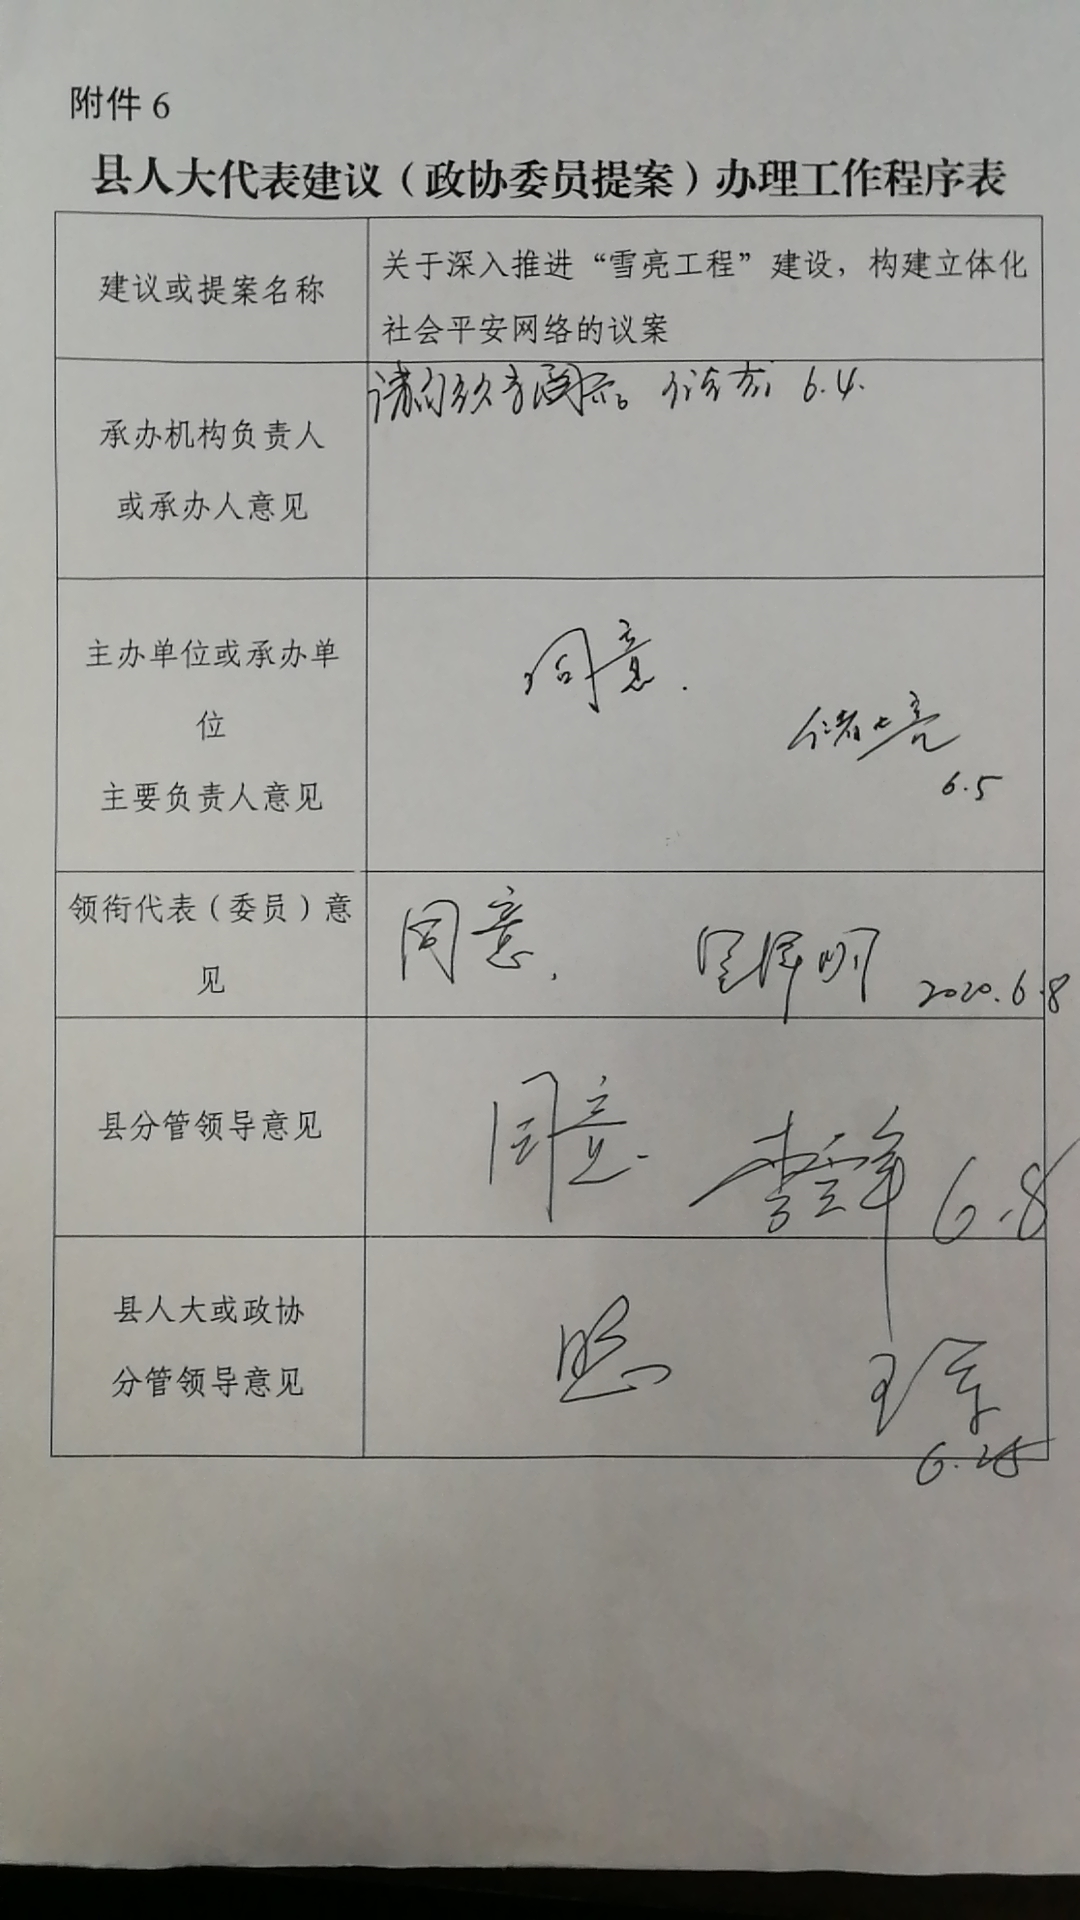 附件6
县人大代表建议（政协委员提案）办理工作程序表
建议或提案名称
关于深入推进“雪亮工程”建设，构建立体化
社会平安网络的议案
承办机构负责人
或承办人意见
请 阅示。 6.4.
主办单位或承办单
位
主要负责人意见
同意.
6.5
领衔代表（委员）意
见
同意,
2020.6.8
县分管领导意见
同意.
6.8
县人大或政协
分管领导意见
6.25